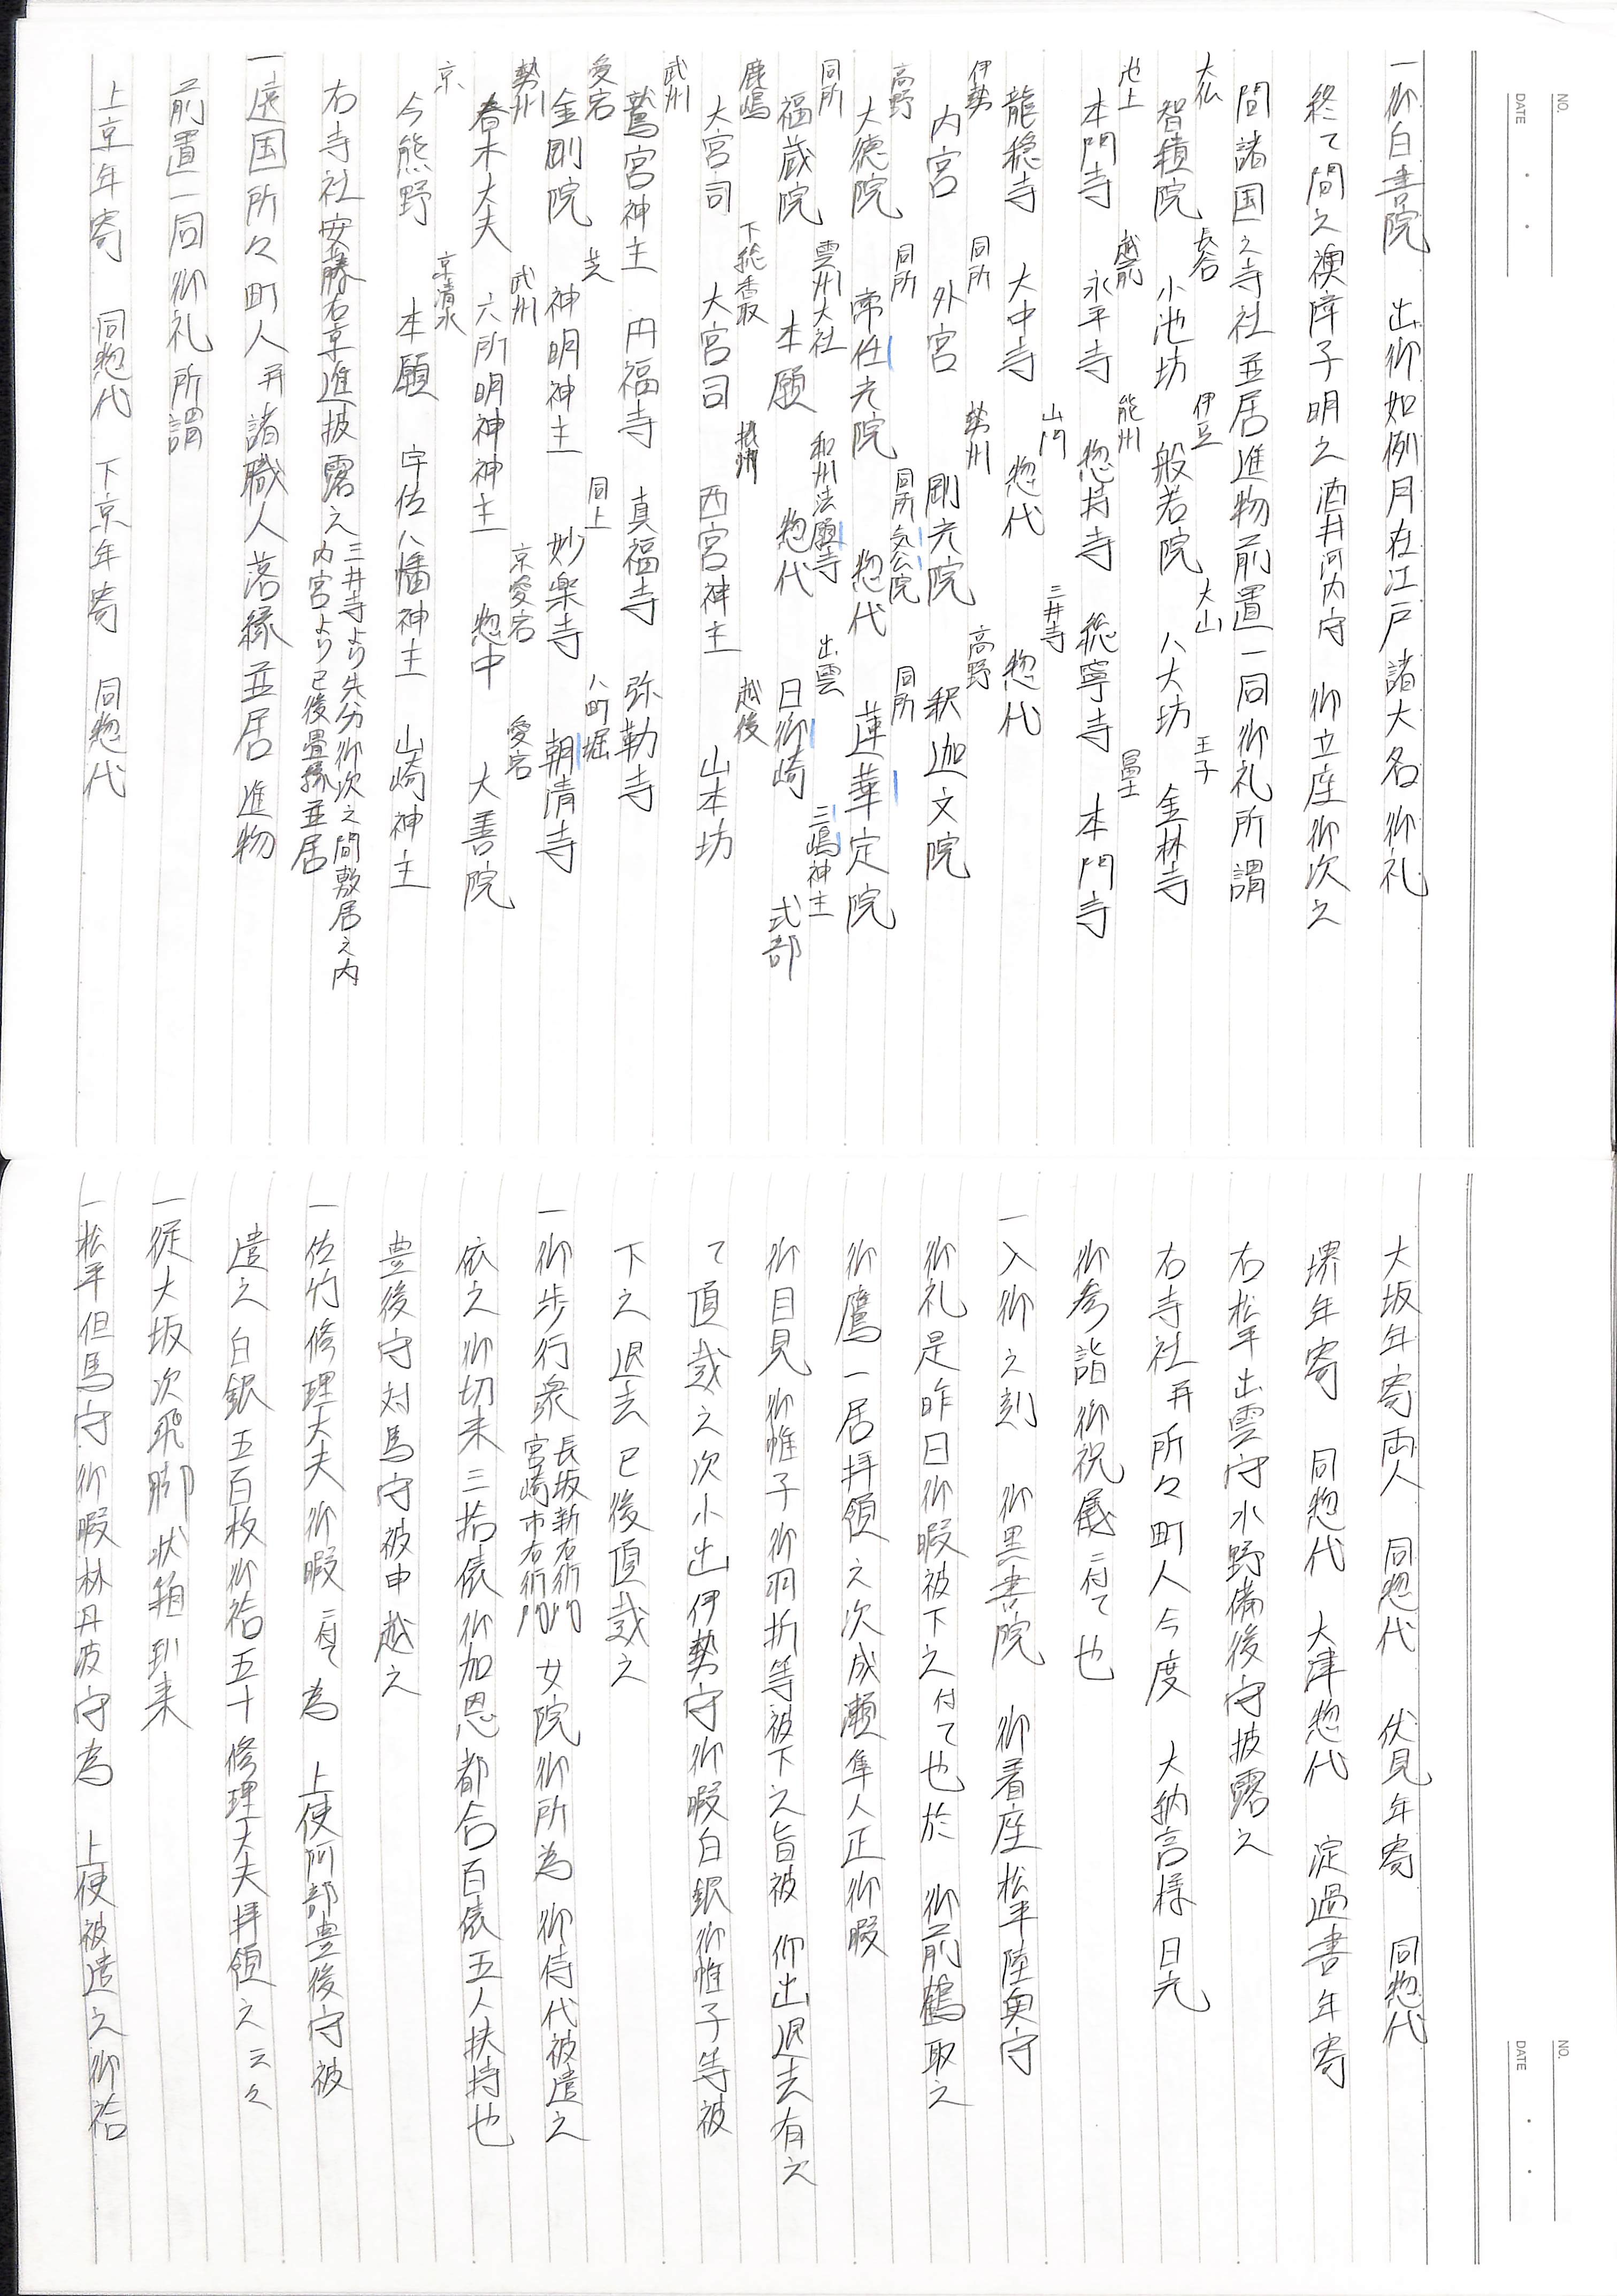 NO.
DATE
一御白書院　出御如例月在江戸諸大名御礼
終て間之襖障子明之酒井河内守　御立座御次之
間諸国之寺社並居進物前置一同御礼所謂
大仏　長谷　伊豆　大山　王子
智積院　小池坊　般若院　八大坊　金林寺
池上　越前　能州　冨士
本門寺　永平寺　惣持寺　総寧寺　本門寺
山門　三井寺
龍穏寺　大中寺　惣代　惣代
伊勢　同所　勢州　高野
内宮　外宮　剛光院　釈迦文院
高野　同所　同所　同所
大徳院　常住光院　惣代　蓮華定院
同所　雲州大社　和州法願寺　出雲　三嶋神主
福蔵院　本願　惣代　日御崎　式部
鹿嶋　下総香取　摂州　越後
大宮司　大宮司　西宮神主　山本坊
武州
鷲宮神主　円福寺　真福寺　弥勒寺
愛宕　芝　同上　八町堀
金剛院　神明神主　妙楽寺　朝清寺
勢州　武州　京愛宕　愛宕
春木大夫　六所明神神主　惣中　大善院
京　京清水
今熊野　本願　宇佐八幡神主　山崎神主
右寺社安藤右京進披露之　三井寺より先分御次之間敷居之内
内宮より已後畳縁並居
一遠国所々町人并諸職人落縁並居進物
前置一同御礼所謂
上京年寄　同惣代　下京年寄　同惣代
NO.
DATE
大坂年寄両人　同惣代　伏見年寄　同惣代
堺年寄　同惣代　大津惣代　淀過書年寄
右松平出雲守水野備後守披露之
右寺社并所々町人今度　大納言様日光
御参詣御祝儀ニ付て也
一入御之刻　御黒書院　御着座松平陸奥守
御礼是昨日御暇被下之付て也於　御前鶴取之
御鷹一居拝領之次成瀬隼人正御暇
御目見御帷子御羽折等被下之旨被　仰出退去有之
て頂戴之次小出伊勢守御暇白銀御帷子等被
下之退去已後頂戴之
一御歩行衆　長坂新右衛門　宮崎市右衛門　女院御所為　御侍代被遣之
依之御切米三拾俵御加恩都合百俵五人扶持也
豊後守対馬守被申越之
一佐竹修理大夫御暇ニ付て為　上使阿部豊後守被
遣之白銀五百枚御袷五十修理大夫拝領之云々
一従大坂次飛脚状箱到来
一松平但馬守御暇林丹波守為　上使被遣之御袷